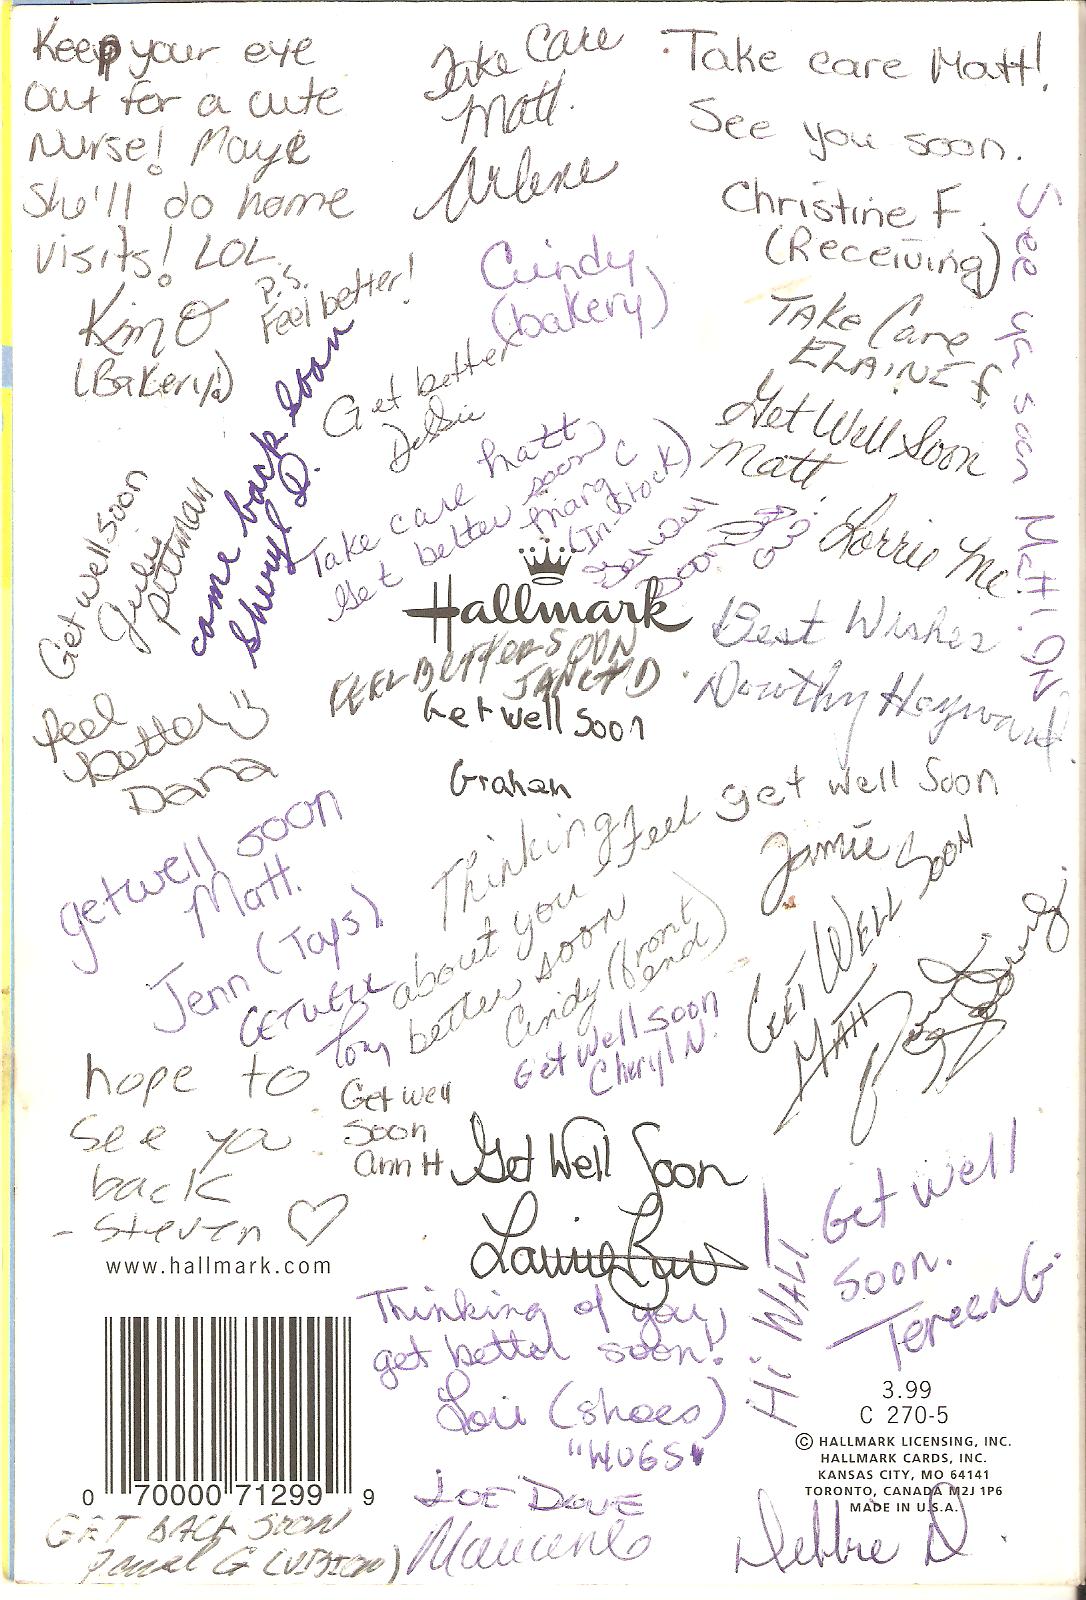 Keep your eye
out for a cute
Nurse! Maye
She'll do home
visits! LOL
P.S.
Feel better!
Kim O
(Bakery!)
Take Care
Matt.
Arlene
Take care Matt!
See you soon.
Christine F.
(Receiving)
See ya soon Matt!
Cindy
(bakery)
Take Care
ELAINE f.
Get better
Debbie
Get Well Soon
Matt
Lorrie Mc
come back soon
Sheryl D.
Get well Soon
Julie
Pittman
Take care Matt
Get better soon
Marg C
(In-Stock)
Get well
soon
Hallmark
Best Wishes
Dorothy Hayward.
FEEL BETTER SOON
JANET D
Get well Soon
Graham
feel
better
Dana
get well Soon
Jamie
getwell soon
Matt.
Jenn (Tops)
Thinking
about you Feel
better soon
Cindy (front
end)
GET WELL SOON
MATT
GETWELL
Tony
Get Well Soon
Cheryl N.
hope to
see ya
back
- Steven ♡
Get well
Soon
Ann H
Get Well Soon
Get well
soon.
Tereen G.
Hi WALI
www.hallmark.com
Thinking of you,
get better soon!
Lori (shoes)
"HUGS"
3.99
C 270-5
© HALLMARK LICENSING, INC.
HALLMARK CARDS, INC.
KANSAS CITY, MO 64141
TORONTO, CANADA M2J 1P6
MADE IN U.S.A.
0 70000 71299 9
GET BACK SOON
G (VISION)
JOE DOVE
Debbie D.